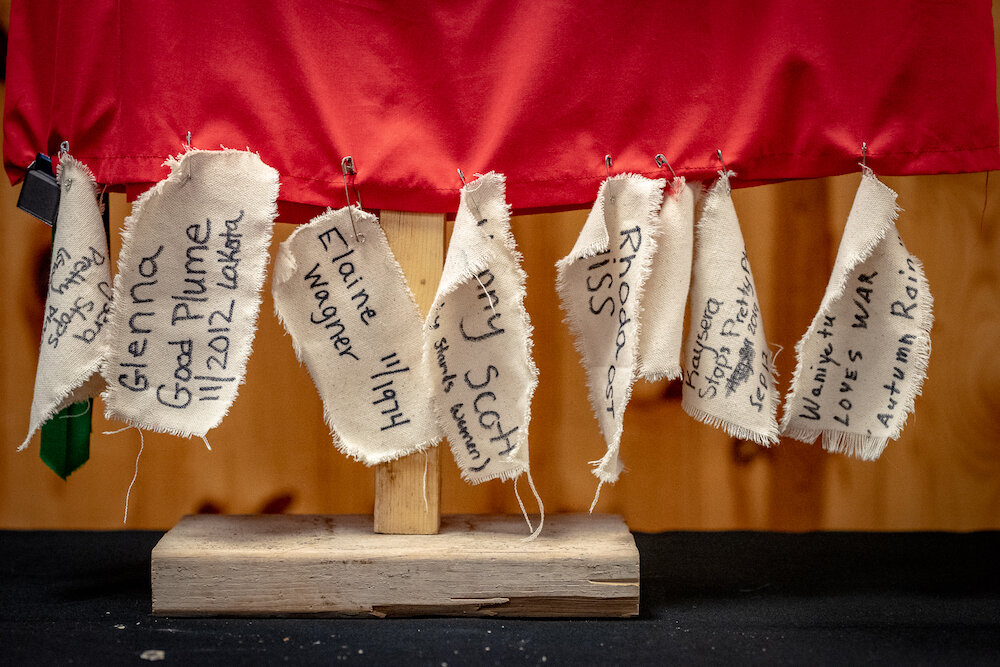 Pretty
Stops
Glenna
Good Plume
11/2012 Lakota
Elaine
Wagner
11/1974
Scott
Stands women)
Rhoda
OST
Kaysera
Stops Pretty
Waniyetu
LOVES WAR
"Autumn Rain